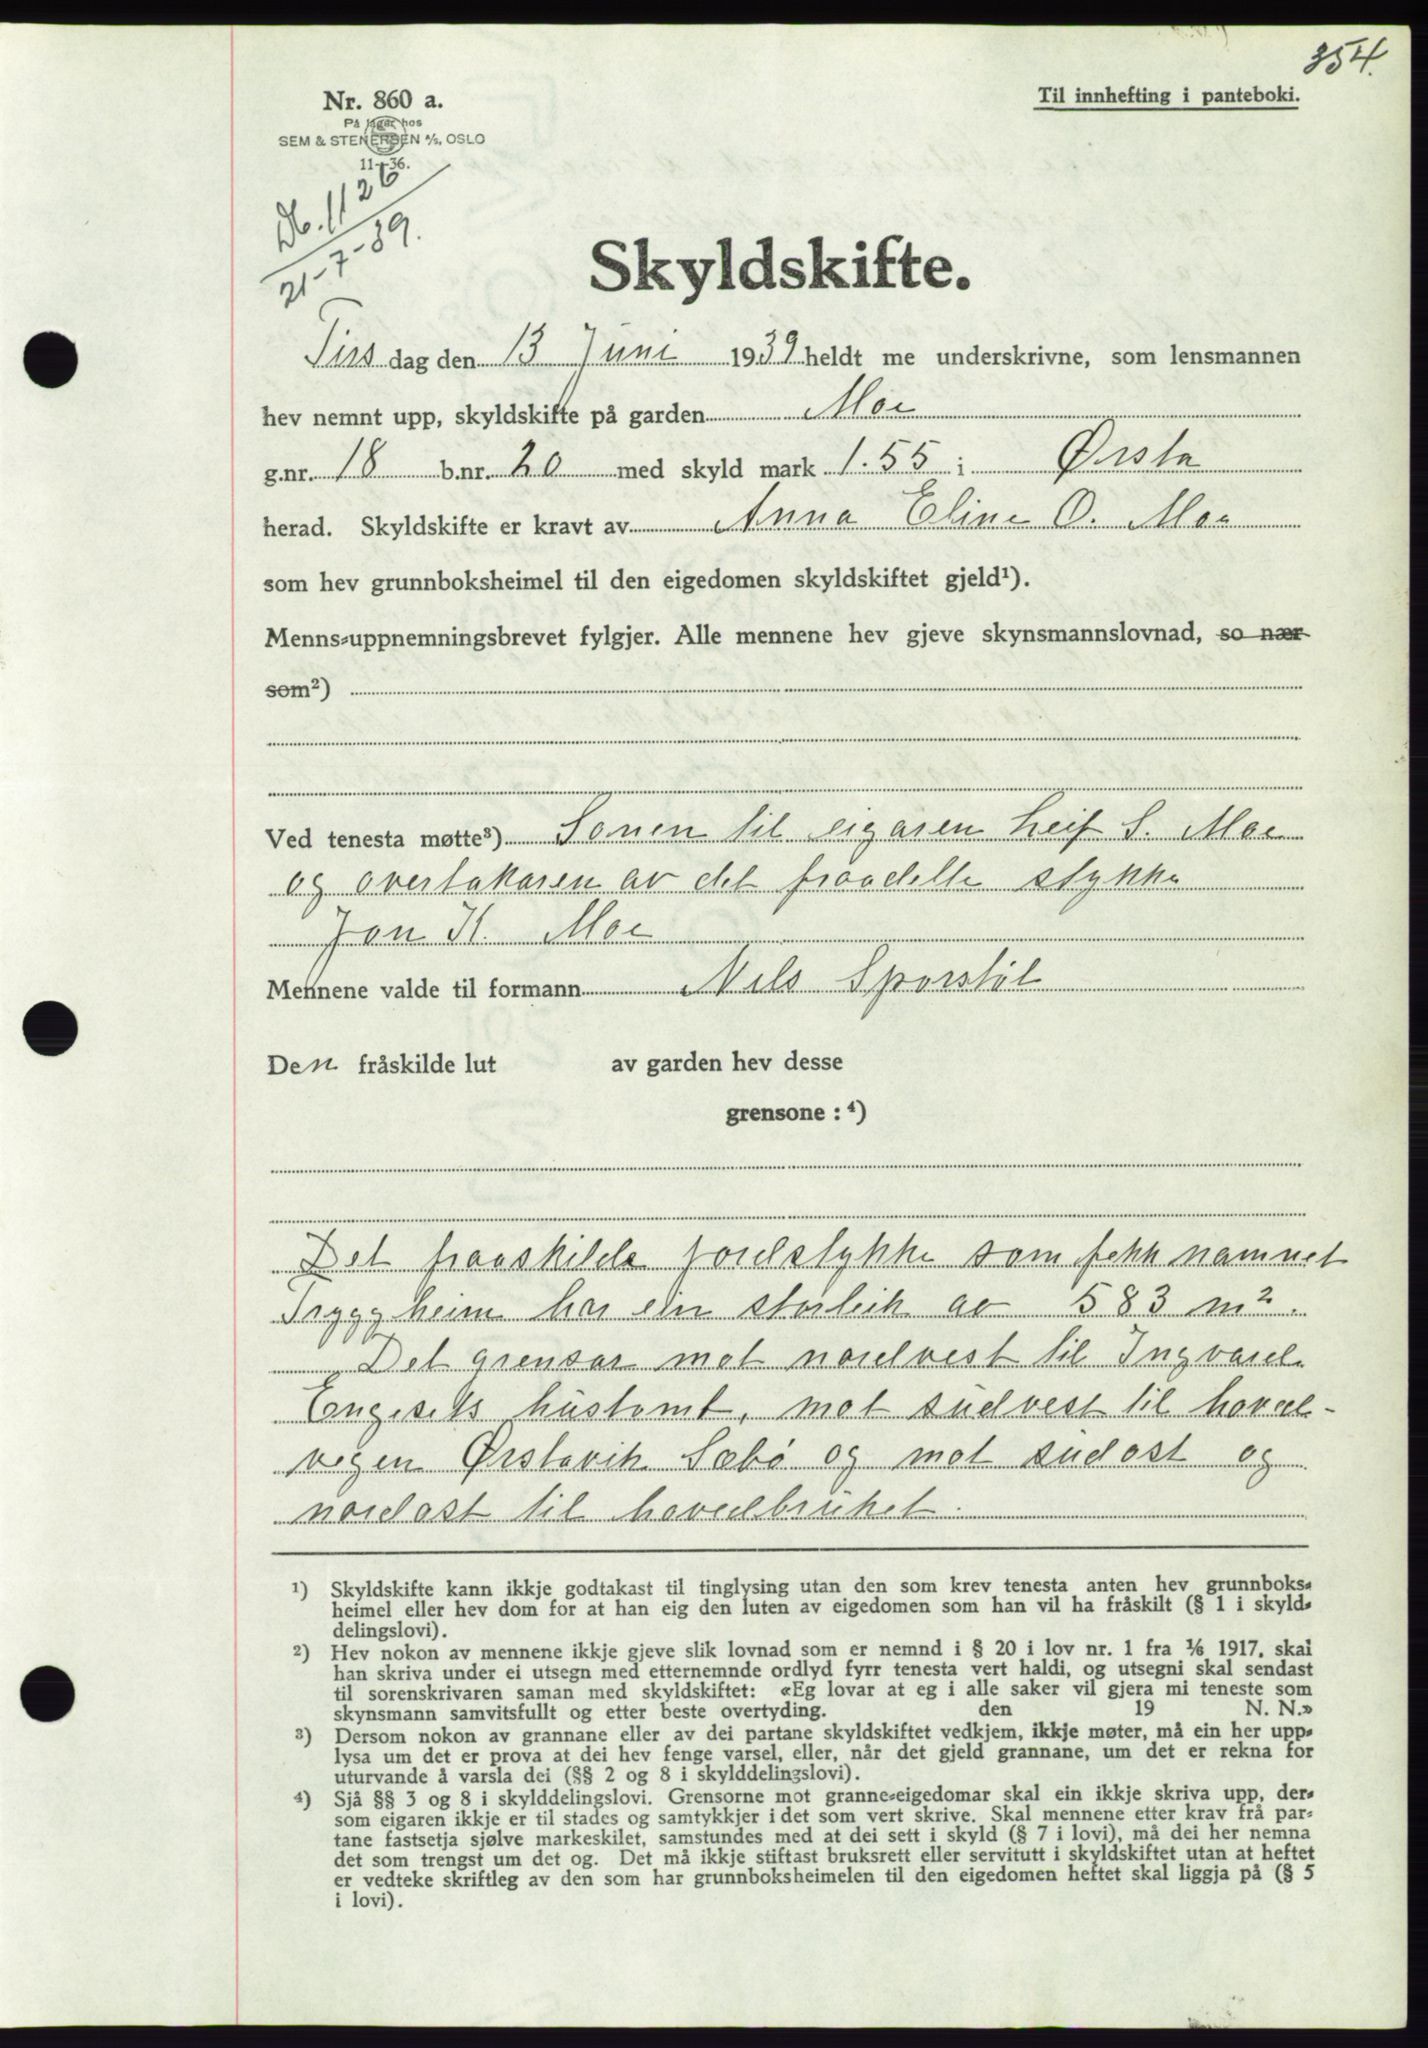 354.
Nr. 860 a.
På lager hos
SEM & STENERSEN A/S, OSLO
11—36.
Til innhefting i panteboki.
Db. 1126
21-7-39.
Skyldskifte.
Tirsdag den 13 Juni 1939 heldt me underskrivne, som lensmannen
hev nemnt upp, skyldskifte på garden Moe
g.nr. 18 b.nr. 20 med skyld mark 1.55 i Ørsta
herad. Skyldskifte er kravt av Anna Eline O. Moe
som hev grunnboksheimel til den eigedomen skyldskiftet gjeld¹).
Menns-uppnemningsbrevet fylgjer. Alle mennene hev gjeve skynsmannslovnad, so nær
som²)
Ved tenesta møtte³) Sonen til eigaren Leif S. Moe
og overtakaren av det fraadelte stykke
Jon K. Moe
Mennene valde til formann Nils Sporstøl
Den fråskilde lut av garden hev desse
grensone : ⁴)
Det fraaskilde jordstykke som fekk namnet
Tryggheim har ein storleik av 583 m².
Det grensar mot nordvest til Ingvard
Engesets hustomt, mot sudvest til hoved-
vegen Ørstavik Sæbø og mot sudost og
nordost til hovedbruket.
¹) Skyldskifte kann ikkje godtakast til tinglysing utan den som krev tenesta anten hev grunnboks-
heimel eller hev dom for at han eig den luten av eigedomen som han vil ha fråskilt (§ 1 i skyld-
delingslovi).
²) Hev nokon av mennene ikkje gjeve slik lovnad som er nemnd i § 20 i lov nr. 1 fra 1/6 1917, skal
han skriva under ei utsegn med etternemnde ordlyd fyrr tenesta vert haldi, og utsegni skal sendast
til sorenskrivaren saman med skyldskiftet: «Eg lovar at eg i alle saker vil gjera mi teneste som
skynsmann samvitsfullt og etter beste overtyding. den 19 N. N.»
³) Dersom nokon av grannane eller av dei partane skyldskiftet vedkjem, ikkje møter, må ein her upp-
lysa um det er prova at dei hev fenge varsel, eller, når det gjeld grannane, um det er rekna for
uturvande å varsla dei (§§ 2 og 8 i skylddelingslovi).
⁴) Sjå §§ 3 og 8 i skylddelingslovi. Grensorne mot granne-eigedomar skal ein ikkje skriva upp, der-
som eigaren ikkje er til stades og samtykkjer i det som vert skrive. Skal mennene etter krav frå par-
tane fastsetja sjølve markeskilet, samstundes med at dei sett i skyld (§ 7 i lovi), må dei her nemna
det som trengst um det og. Det må ikkje stiftast bruksrett eller servitutt i skyldskiftet utan at heftet
er vedteke skriftleg av den som har grunnboksheimelen til den eigedomen heftet skal liggja på (§ 5
i lovi).